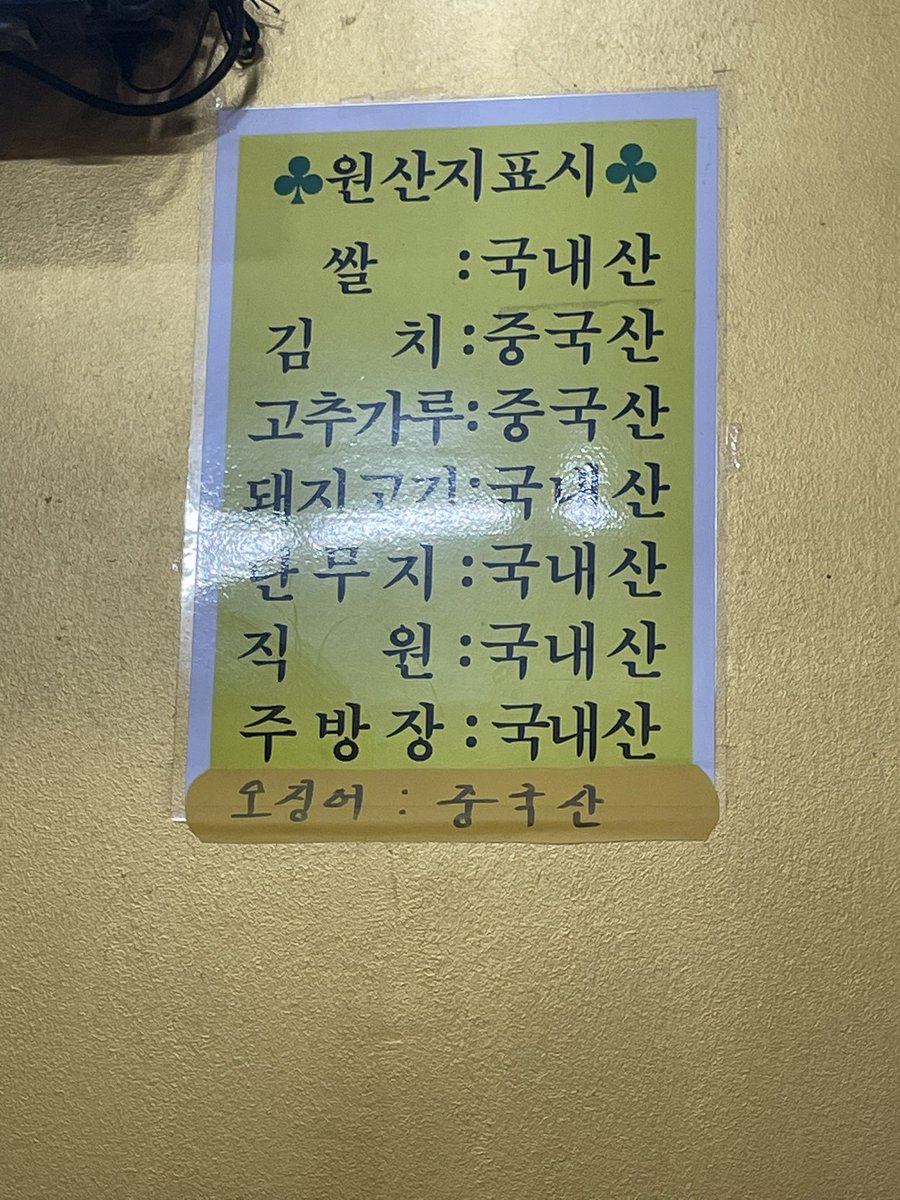 ♣원산지표시♣
쌀 :국내산
김 치:중국산
고추가루:중국산
돼지고기:국내산
단무지:국내산
직 원:국내산
주방장:국내산
오징어 : 중국산